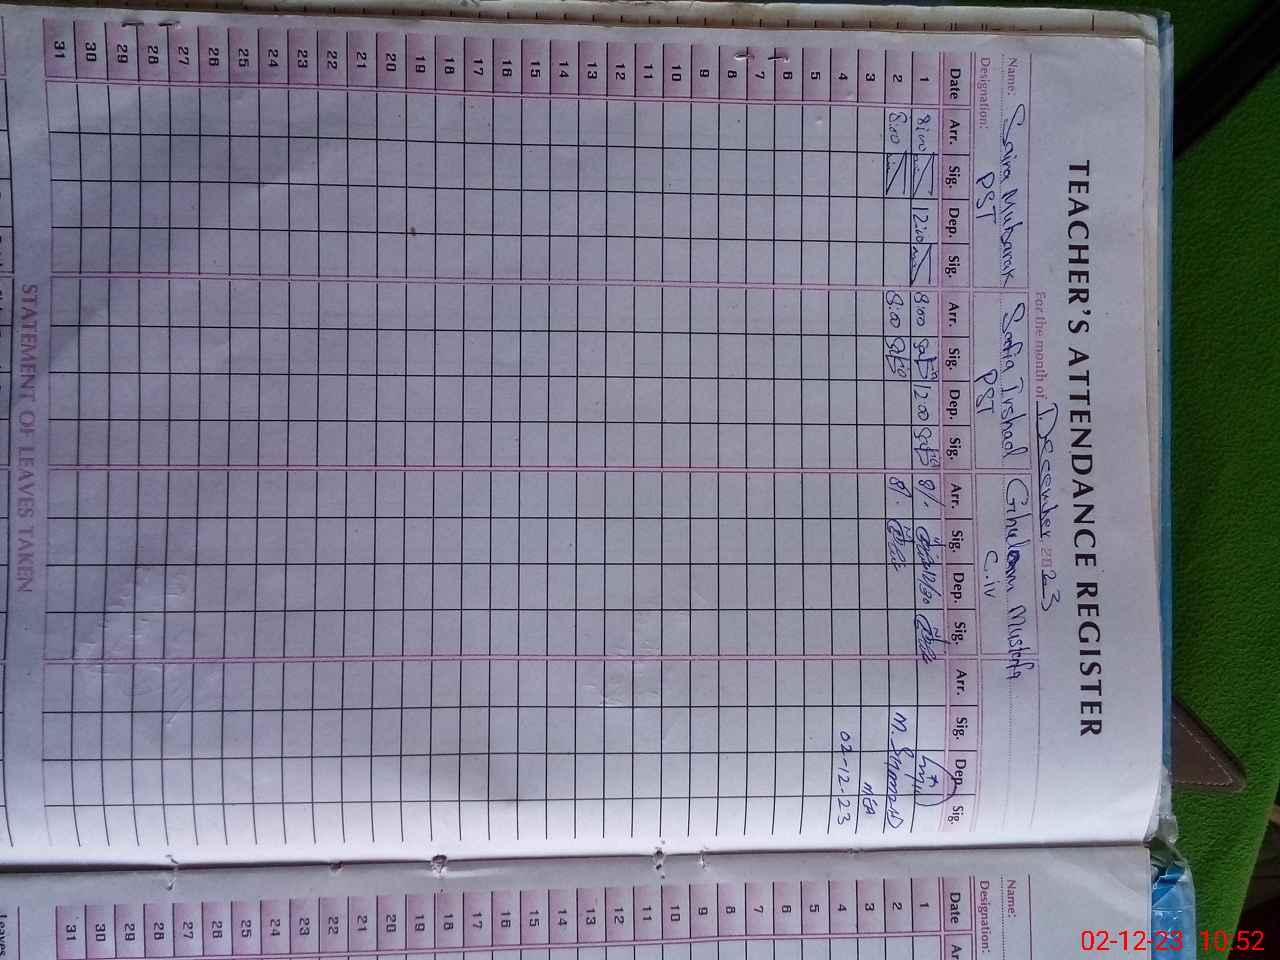 TEACHER'S ATTENDANCE REGISTER
For the month of December 2023
Name: Saira Mubarak Safia Irshad Ghulam Mustafa
Designation: PST PST C.iv
Date Arr. Sig. Dep. Sig. Arr. Sig. Dep. Sig. Arr. Sig. Dep. Sig. Arr. Sig. Dep. Sig.
1 8:00 12:00 8:00 Safia 12:00 Safia 8/. 12/30
2 8:00 8:00 Safia 8/.
3 MEA
4 02-12-23
5
6
7
8
9
10
11
12
13
14
15
16
17
18
19
20
21
22
23
24
25
26
27
28
29
30
31
STATEMENT OF LEAVES TAKEN
Name:
Designation:
Date
1
2
3
4
5
6
7
8
9
10
11
12
13
14
15
16
17
18
19
20
21
22
23
24
25
26
27
28
29
30
31
Leaves
02-12-23 10:52